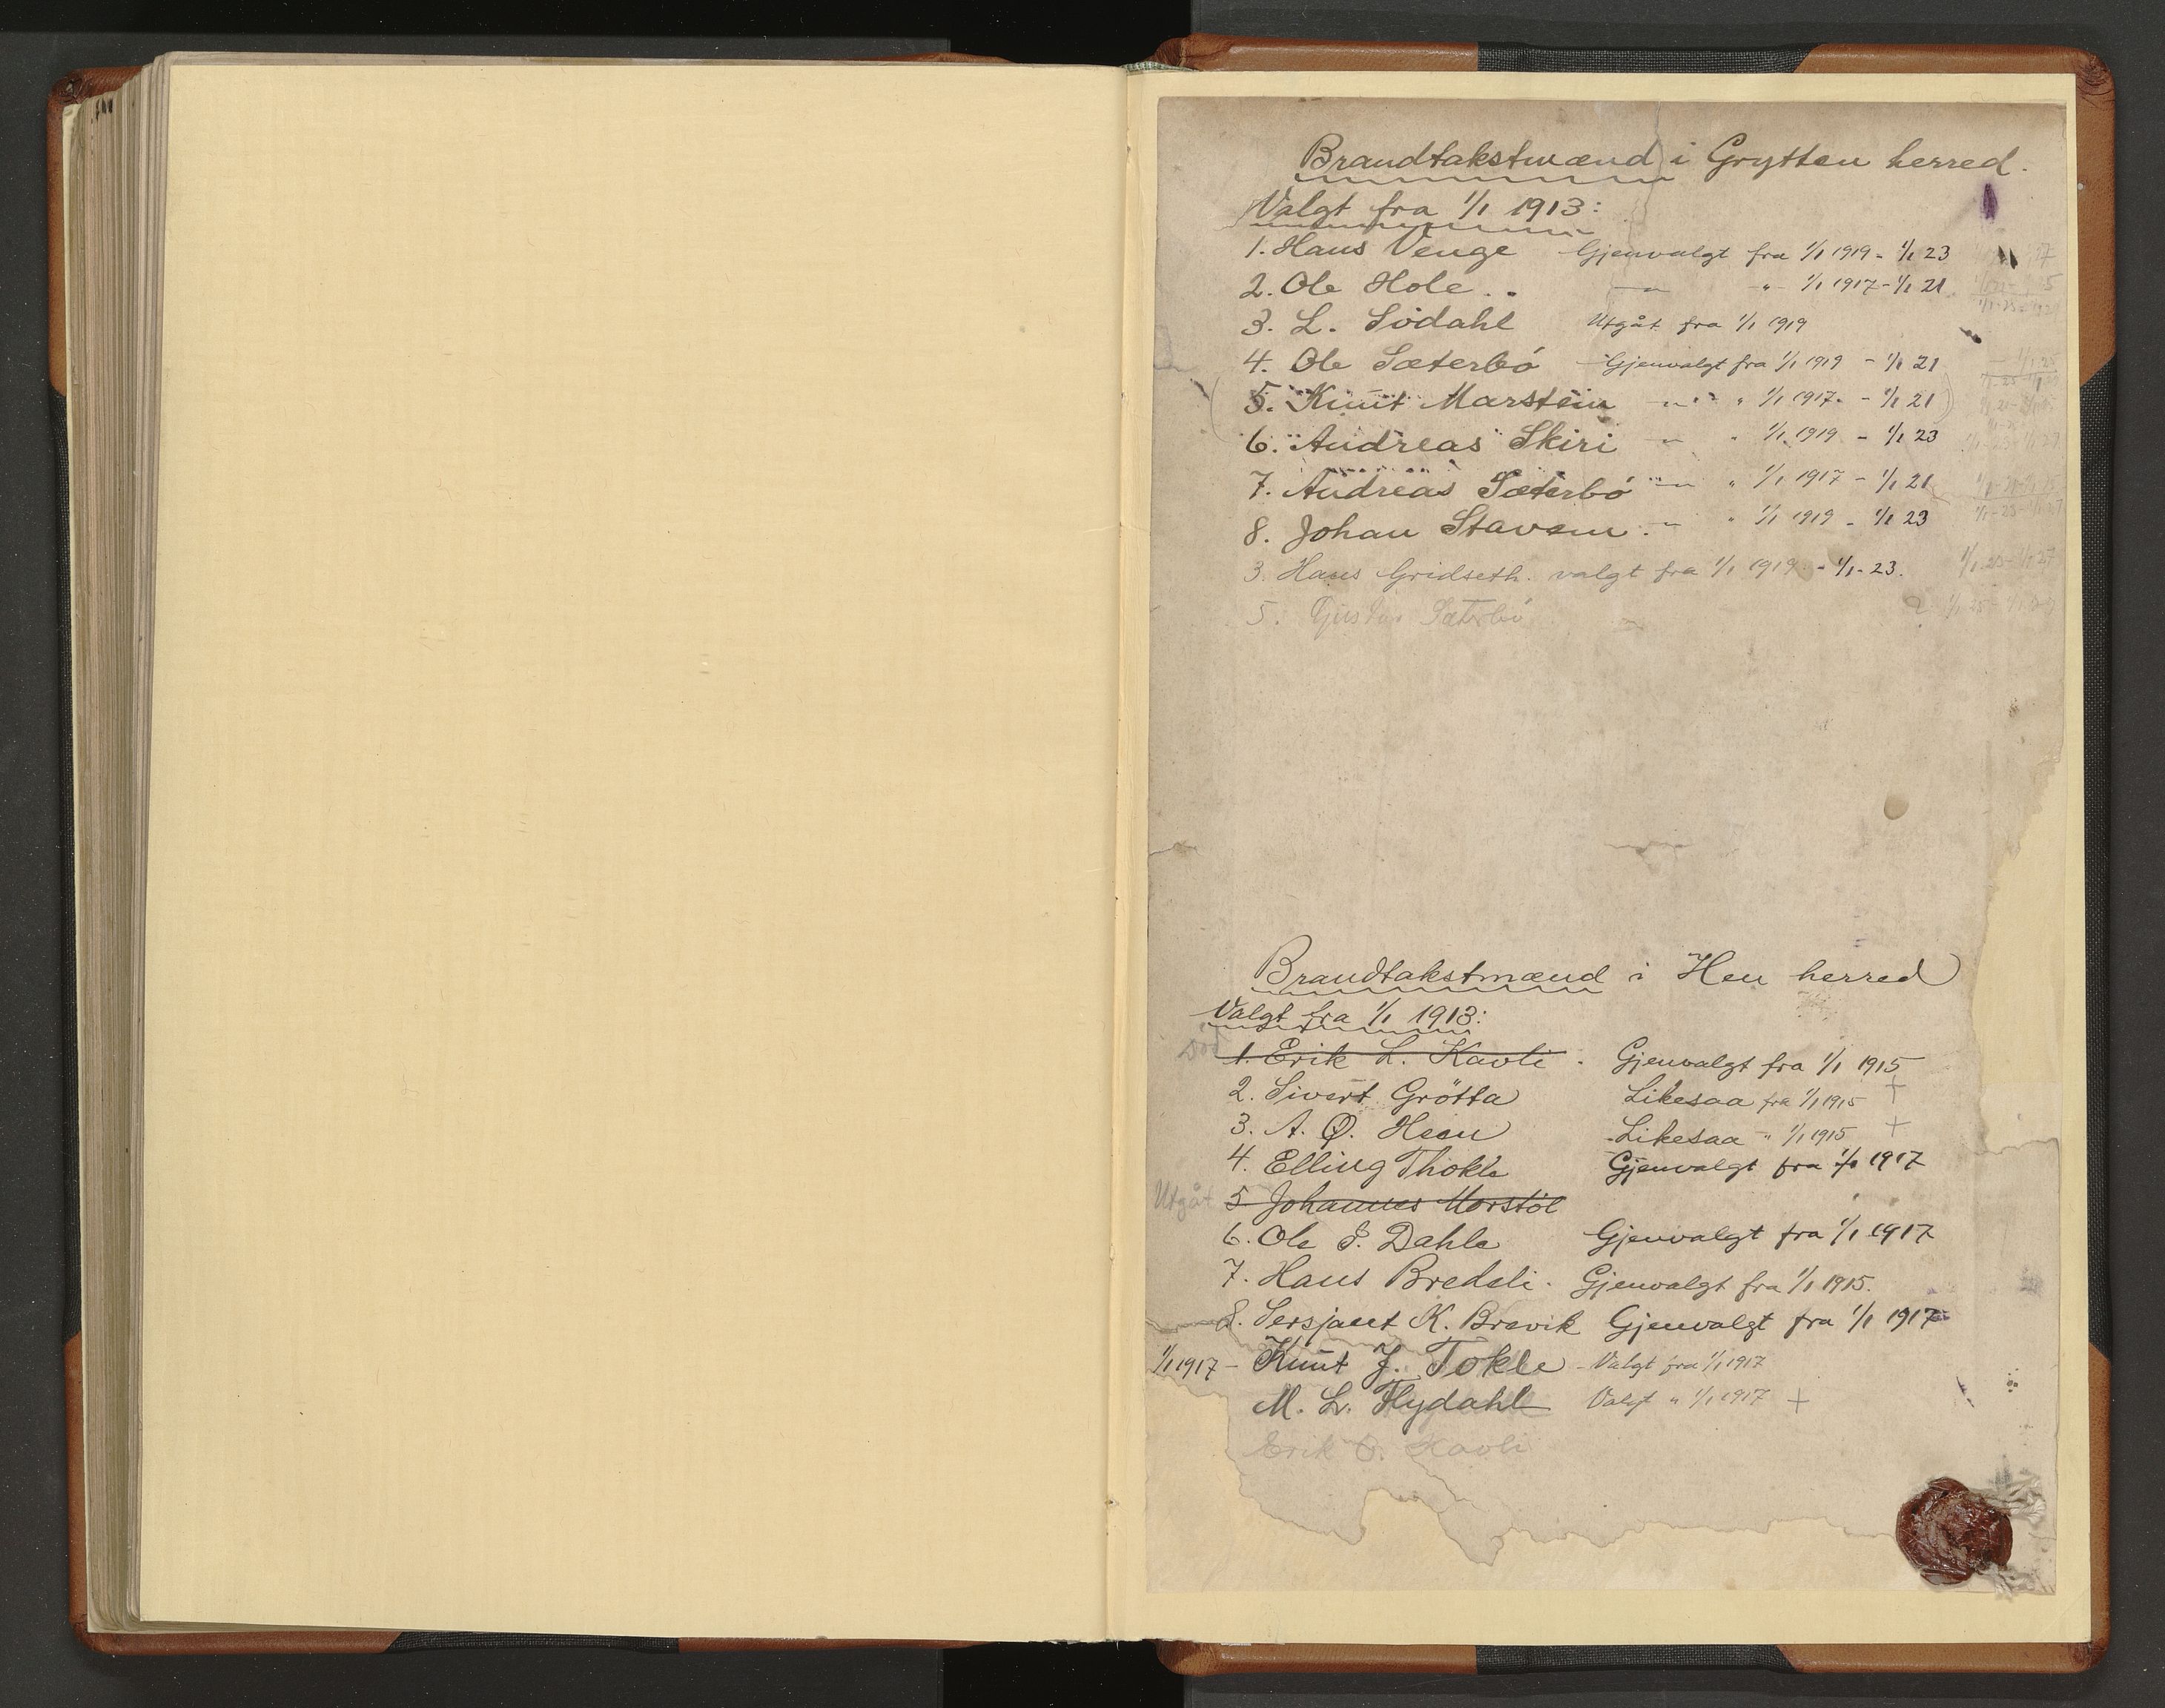 Brandtakstmænd i Grytten herred.
Valgt fra 1/1 1913:
1. Hans Venge Gjenvalgt fra 1/1 1919 - 1/1 23
2. Ole Hole .. —"— " 1/1 1917 - 1/1 21
3. L. Södahl Utgåt fra 1/1 1919
4. Ole Sæterbö Gjenvalgt fra 1/1 1919 - 1/1 21
(5. Knut Marstein —"— " 1/1 1917 - 1/1 21)
6. Andreas Skiri —"— " 1/1 1919 - 1/1 23
7. Andreas Sæterbö —"— " 1/1 1917 - 1/1 21
8. Johan Stavem. —"— " 1/1 1919 - 1/1 23
3. Hans Gridseth. valgt fra 1/1 1919 - 1/1-23. 1/1 23-1/1 27
5. Gustav Sæterbö
Brandtakstmænd i Hen herred
Valgt fra 1/1 1913:
Död 1. Erik L. Kavli. Gjenvalgt fra 1/1 1915
2. Sivert Grötta Likesaa fra 1/1 1915 +
3. A. O. Heen Likesaa " 1/1 1915 +
4. Elling Thokle Gjenvalgt fra 1/1 1917
Utgåt 5 Johannes Morstöl
6. Ole S. Dahle Gjenvalgt fra 1/1 1917
7. Hans Bredeli. Gjenvalgt fra 1/1 1915.
8. Sersjant K. Brevik Gjenvalgt fra 1/1 1917
1/1 1917 - Knut J. Tokle - Valgt fra 1/1 1917
M. L. Flydahl Valgt " 1/1 1917 +
Erik O. Kavli